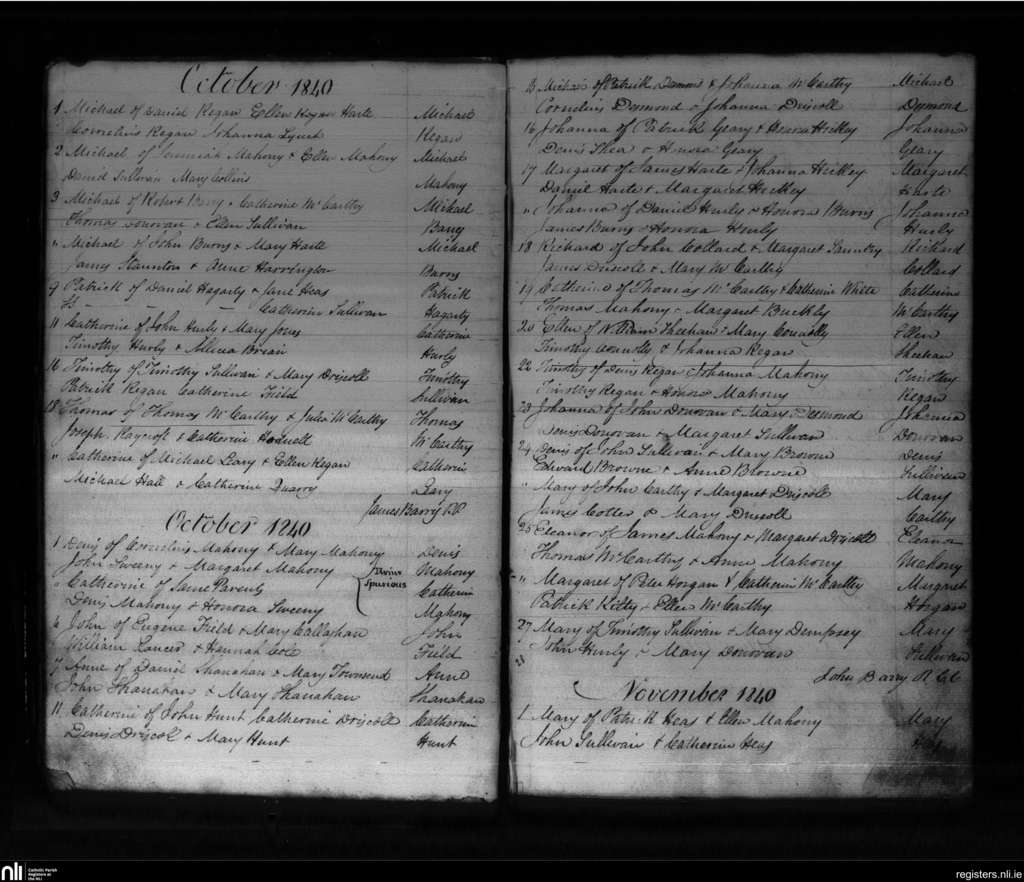 October 1840
1 Michael of Daniel Regan Ellen Regan Harte Michael
Cornelius Regan Johanna Lynch Regan
2 Michael of Jeremiah Mahony & Ellen Mahony Michael
David Sullivan Mary Collins Mahony
3 Michael of Robert Barry & Catherine McCarthy Mikael
Thomas Donovan & Ellen Sullivan Barry
" Michael of John Burns & Mary Harte Michael
James Staunton & Anne Harrington Burns
9 Patrick of Daniel Hagarty & Jane Heas Patrick
Catherine Sullivan Hagarty
11 Catherine of John Hurly & Mary Jones Catherine
Timothy Hurly & Brean Hurly
16 Timothy of Timothy Sullivan & Mary Driscoll Timothy
Patrick Regan Catherine Field Sullivan
18 Thomas of Thomas McCarthy & Julia McCarthy Thomas
Joseph Raycroft & Catherine McCarthy
" Catherine of Michael Leary & Ellen Regan Catherin
Michael Hall & Catherine Quarry Leary
James Barry P.P.
October 1840
1 Denis of Cornelius Mahony & Mary Mahony Denis
John Sweeny & Margaret Mahony Mahony
Twins
spurious
" Catherine of Same Parents Catherin
Denis Mahony & Honora Sweeny Mahony
6 John of Eugene Field & Mary Callaghan John
William & Hannah Cole Field
7 Anne of Daniel Shanahan & Mary Townsend Anne
John Shanahan & Mary Shanahan Shanahan
11 Catherine of John Hunt Catherine Driscoll Catherine
Denis Driscol & Mary Hunt Hunt
Michael of Patrick Desmond & Johanna McCarthy Michael
Cornelius Desmond & Johanna Driscoll Desmond
16 Johanna of Patrick Geary & Honora Hickey Johanna
Denis Shea & Honora Geary Geary
17 Margaret of James Harte & Johanna Hickey Margaret
Daniel Harte & Margaret Hickey Harte
" Johanna of Daniel Hurly & Honora Burns Johanna
James Burns & Honora Hurly Hurly
18 Richard of John Collard & Margaret Richard
James Driscoll & Mary McCarthy Collard
19 Catherine of Thomas McCarthy & Catherine White Catherine
Thomas Mahony & Margaret Buckly McCarthy
20 Ellen of William Sheehan & Mary Connolly Ellen
Timothy Connolly & Johanna Regan Sheehan
22 Timothy of Denis Regan Johanna Mahony Timothy
Timothy Regan & Honora Mahony Regan
23 Johanna of John Donovan & Mary Desmond Johanna
Denis Donovan & Margaret Sullivan Donovan
24 Denis of John Sullivan & Mary Browne Denis
Edward Browne & Anne Browne Sullivan
" Mary of John Carthy & Margaret Driscoll Mary
James Cotter & Mary Driscoll Carthy
25 Eleanor of James Mahony & Margaret Driscoll Eleanor
Thomas McCarthy & Anne Mahony Mahony
" Margaret of Peter Horgan & Catherin McCarthy Margaret
Patrick Kilty & Ellen McCarthy Horgan
27 Mary of Timothy Sullivan & Mary Dempsey Mary
John Hurly & Mary Donovan Sullivan
John Barry R.C.C.
November 1840
1 Mary of Patrick Heas & Ellen Mahony Mary
John Sullivan & Catherine Heas Heas
nli
Catholic Parish
Registers at
the NLI
registers.nli.ie